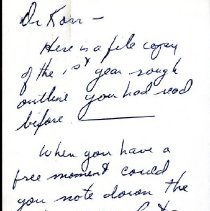 Dr Korr –
Here is a file copy
of the 1st year rough
outline you had read
before.
When you have a
free moment could
you note down the